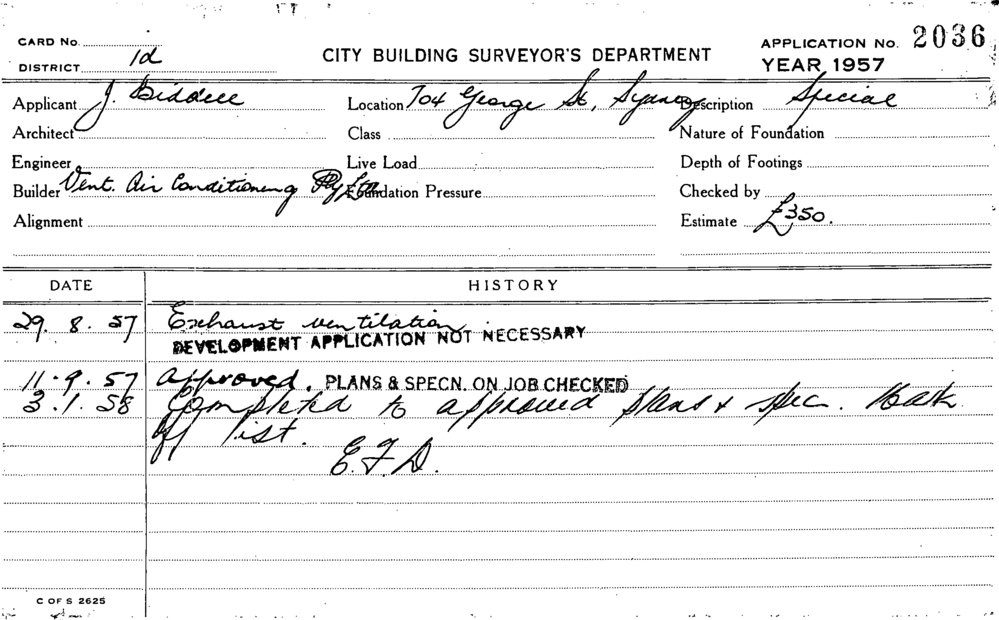 CARD No.
CITY BUILDING SURVEYOR'S DEPARTMENT
APPLICATION No. 2036
DISTRICT 1d
YEAR 1957
Applicant J. Biddell Location 704 George St, Sydney Description Special
Architect Class Nature of Foundation
Engineer Live Load Depth of Footings
Builder Vent. Air Conditioning Pty Ltd Foundation Pressure Checked by
Alignment Estimate £350.
DATE HISTORY
29. 8. 57 Exhaust ventilation
DEVELOPMENT APPLICATION NOT NECESSARY
11.9.57 Approved. PLANS & SPECN. ON JOB CHECKED
3.1.58 Completed to approved plans & spec. Mark
off list.
E.F.D.
C OF S 2625